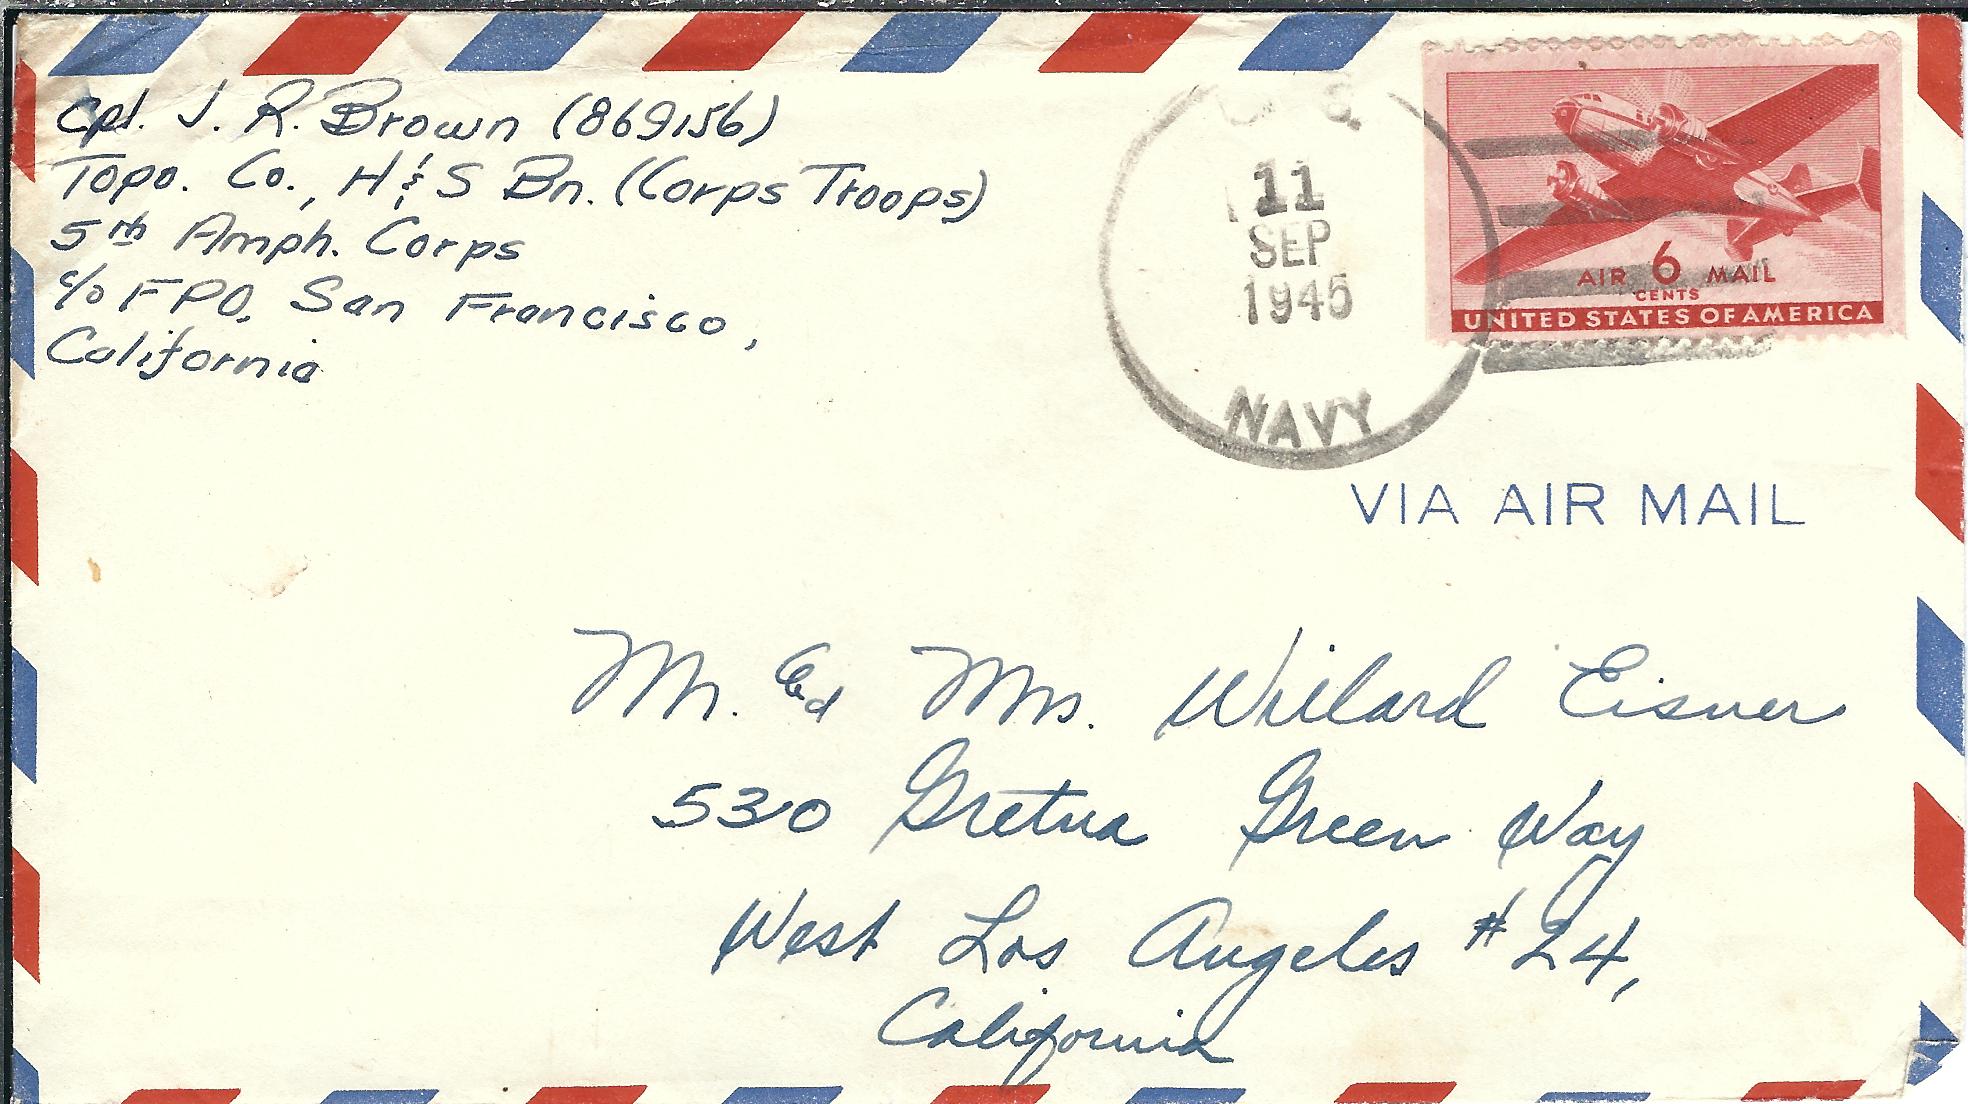 Cpl. J. R. Brown (869156)
Topo. Co., H & S Bn. (Corps Troops)
5th Amph. Corps
c/o FPO, San Francisco,
California
U. S.
11
SEP
1945
NAVY
AIR 6 MAIL
CENTS
UNITED STATES OF AMERICA
VIA AIR MAIL
Mr. and Mrs. Willard Eisner
530 Gretna Green Way
West Los Angeles #24,
California